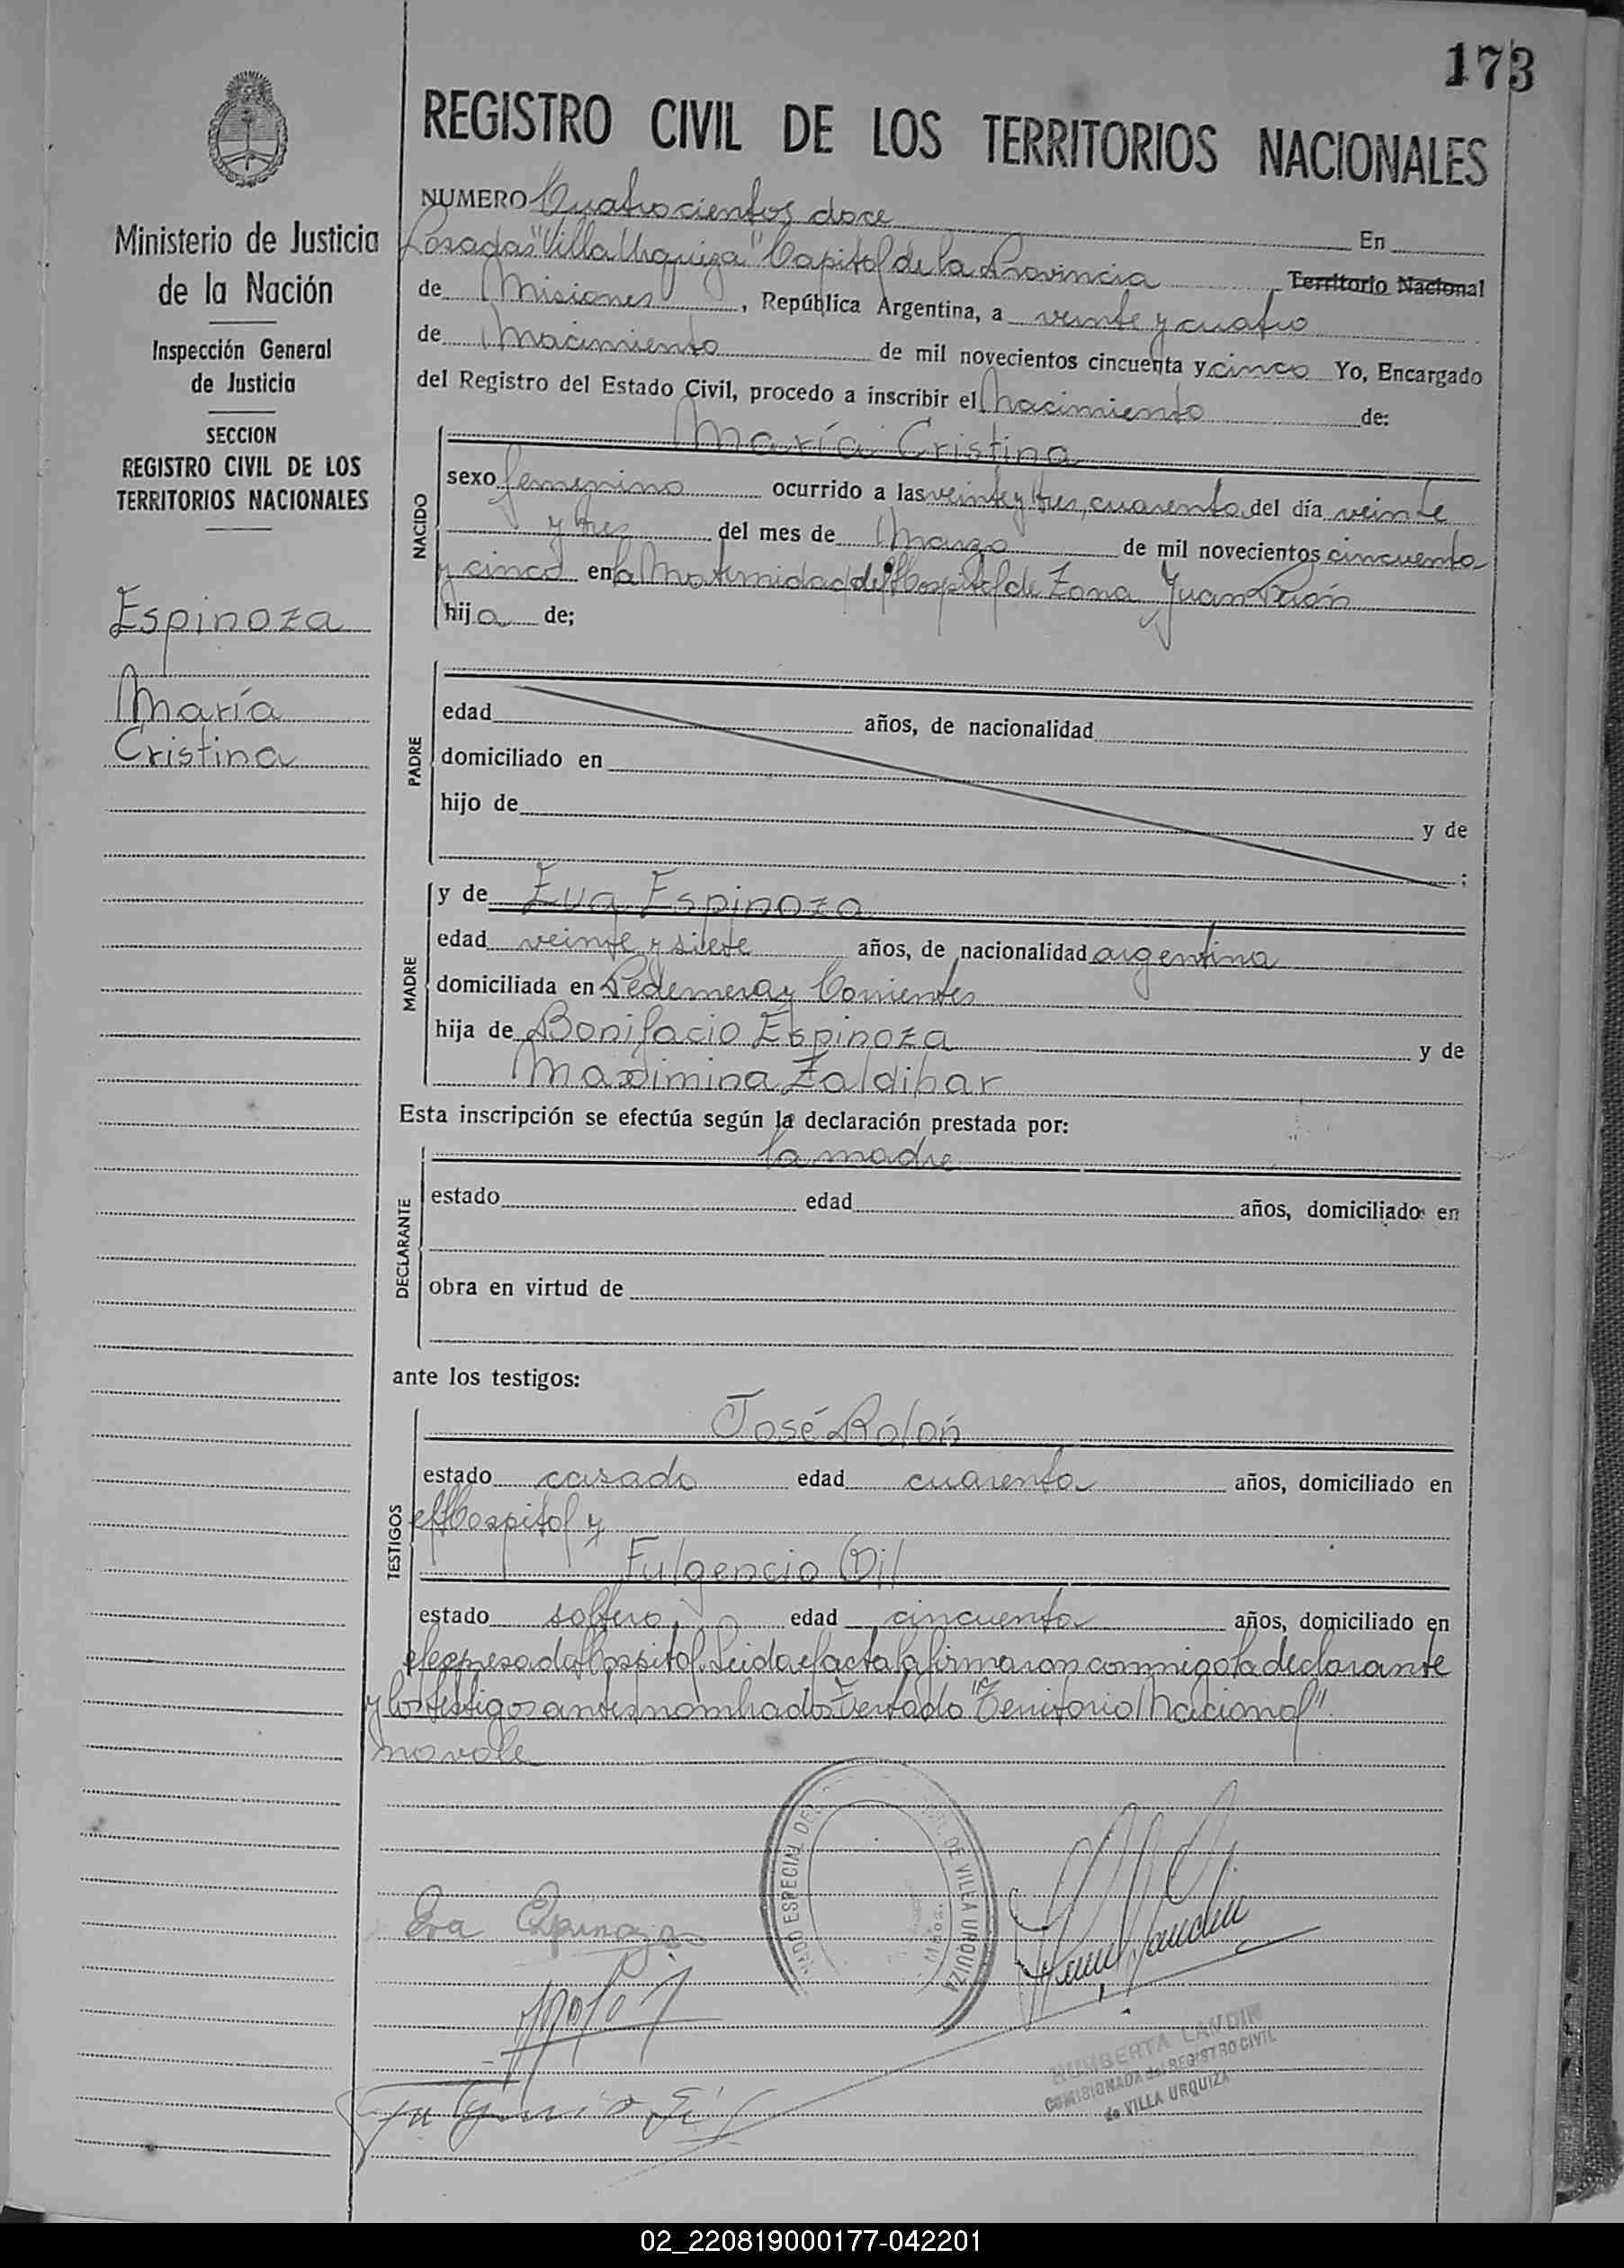 173
REGISTRO CIVIL DE LOS TERRITORIOS NACIONALES
Ministerio de Justicia
de la Nación
Inspección General
de Justicia
SECCION
REGISTRO CIVIL DE LOS
TERRITORIOS NACIONALES
Espinoza
María
Cristina
NUMERO Cuatrocientos doce En
Posadas "Villa Urquiza" Capital de la Provincia Territorio Nacional
de Misiones, República Argentina, a veinte y cuatro
de Nacimiento de mil novecientos cincuenta y cinco Yo, Encargado
del Registro del Estado Civil, procedo a inscribir el Nacimiento de:
NACIDO
María Cristina
sexo femenino ocurrido a las veinte y tres, cuarenta del día veinte
y tres del mes de Marzo de mil novecientos cincuenta
y cinco en la Maternidad del Hospital de Zona Juan Perón
hija de;
PADRE
edad años, de nacionalidad
domiciliado en
hijo de y de
;
MADRE
y de Eva Espinoza
edad veinte y siete años, de nacionalidad argentina
domiciliada en Pedernera y Corrientes
hija de Bonifacio Espinoza y de
Maximina Zaldibar
Esta inscripción se efectúa según la declaración prestada por:
DECLARANTE
la madre
estado edad años, domiciliado en
obra en virtud de
ante los testigos:
TESTIGOS
José Rolón
estado casado edad cuarenta años, domiciliado en
el Hospital y
Fulgencio Gil
estado soltero edad cincuenta años, domiciliado en
el expresado Hospital. Leida el acta la firmaron conmigo la declarante
y los testigos antes nombrados. Testado "Territorio Nacional"
no vale
Eva Espinoza
ESPECIAL DE VILLA URQUIZA
Mnes.
HUMBERTA LANDIN
COMISIONADA del REGISTRO CIVIL
de VILLA URQUIZA
02_220819000177-042201